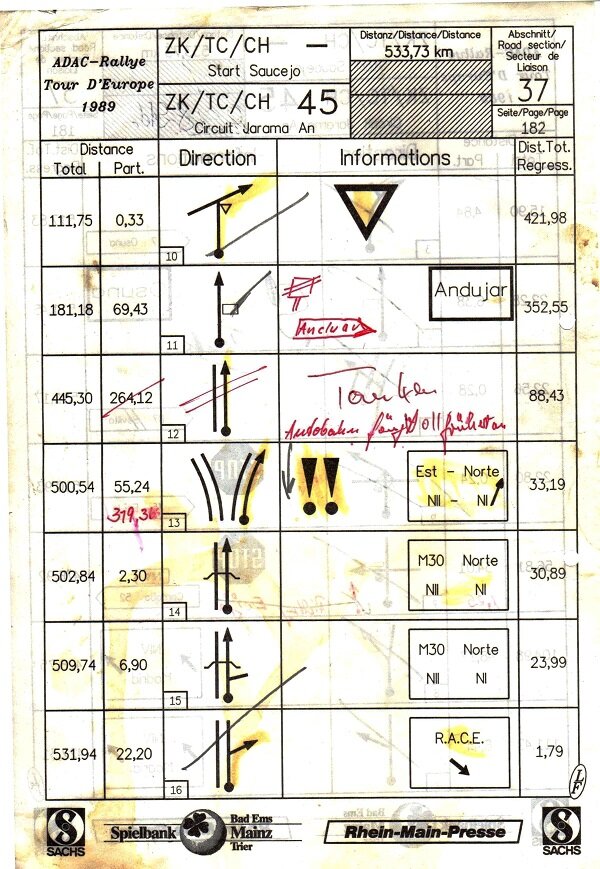 ADAC-Rallye
Tour D'Europe
1989
ZK/TC/CH –
Start Saucejo
ZK/TC/CH 45
Circuit Jarama An
Distanz/Distance/Distance
533,73 km
Abschnitt/
Road section/
Secteur de
Liaison
37
Seite/Page/Page
182
Distance
Total Part.
Direction
Informations
Dist.Tot.
Regress.
111,75 0,33 10 421,98
181,18 69,43 11 Andujar 352,55
445,30 264,12 12 Tanken 88,43
Autobahn
500,54 55,24 13 Est – Norte 33,19
NII – NI
319,36
502,84 2,30 14 M30 Norte 30,89
NII NI
509,74 6,90 15 M30 Norte 23,99
NII NI
531,94 22,20 16 R.A.C.E. 1,79
SACHS
Spielbank
Bad Ems
Mainz
Trier
Rhein-Main-Presse
SACHS